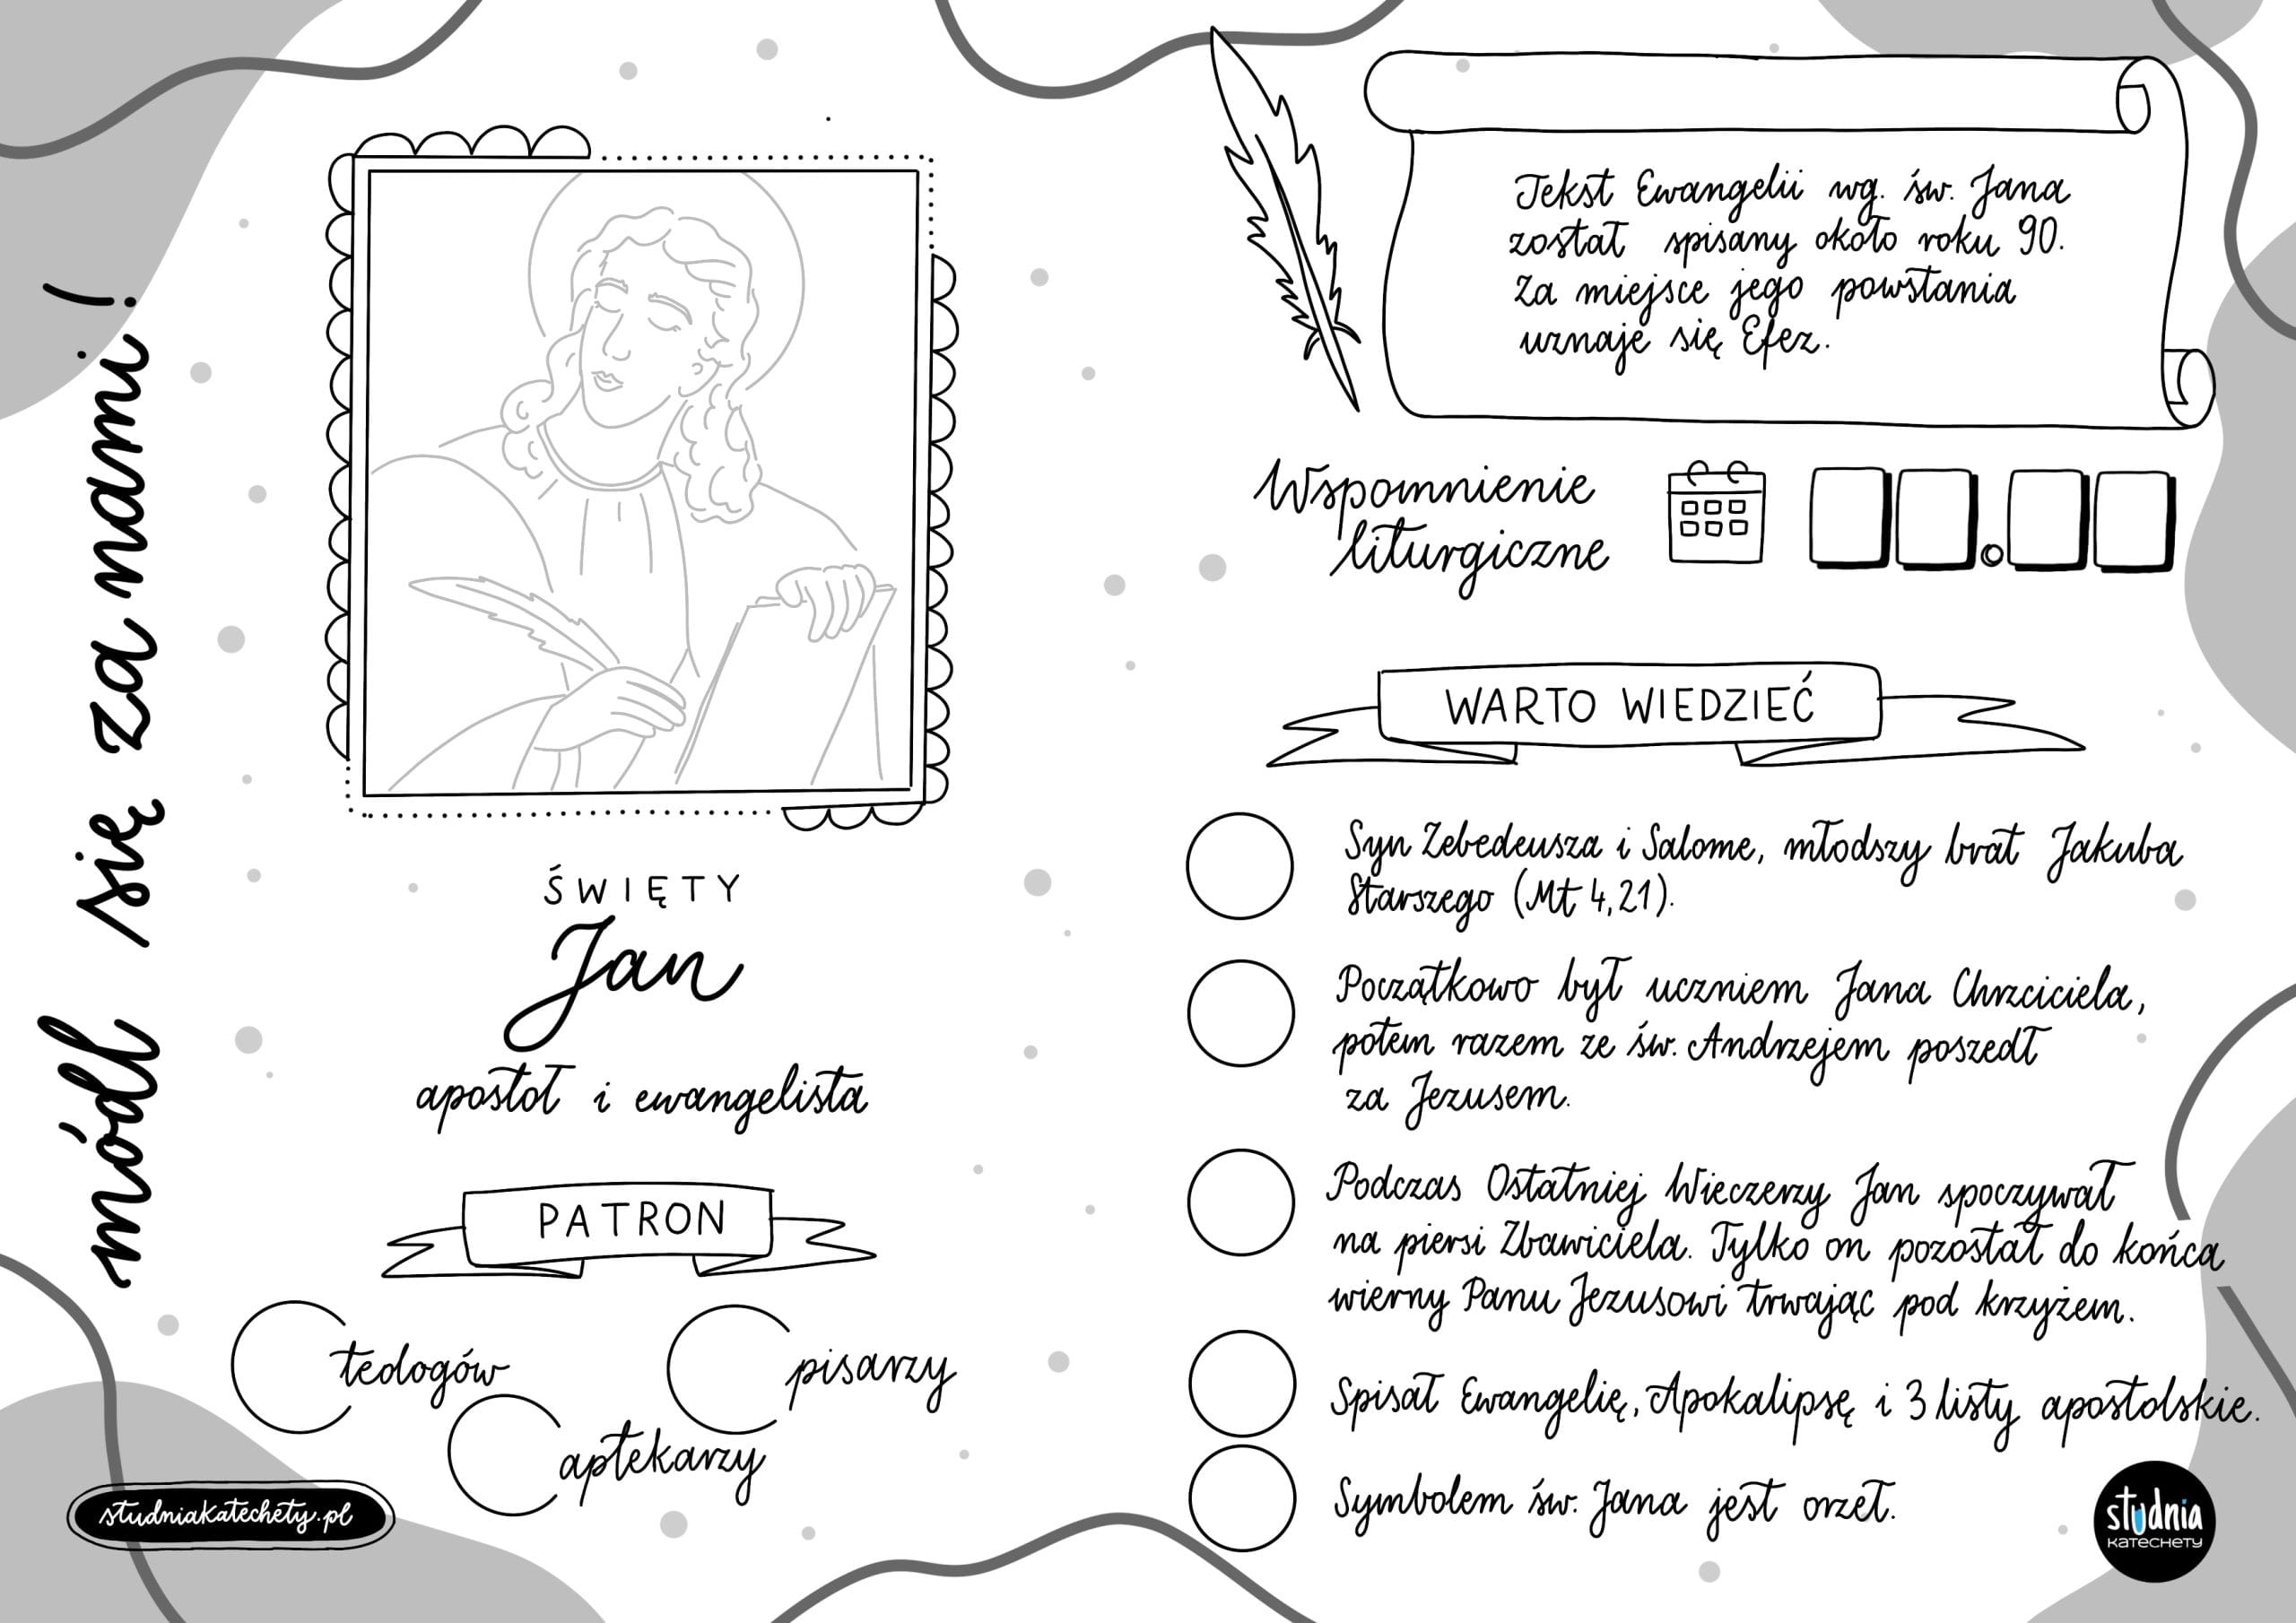 módl się za nami!
ŚWIĘTY
Jan
apostoł i ewangelista
PATRON
teologów
pisarzy
aptekarzy
studniakatechety.pl
Tekst Ewangelii wg. św. Jana
został spisany około roku 90.
Za miejsce jego powstania
uznaje się Efez.
Wspomnienie
liturgiczne
WARTO WIEDZIEĆ
Syn Zebedeusza i Salome, młodszy brat Jakuba
Starszego (Mt 4,21).
Początkowo był uczniem Jana Chrzciciela,
potem razem ze św. Andrzejem poszedł
za Jezusem.
Podczas Ostatniej Wieczerzy Jan spoczywał
na piersi Zbawiciela. Tylko on pozostał do końca
wierny Panu Jezusowi trwając pod krzyżem.
Spisał Ewangelię, Apokalipsę i 3 listy apostolskie.
Symbolem św. Jana jest orzeł.
studnia
KATECHETY